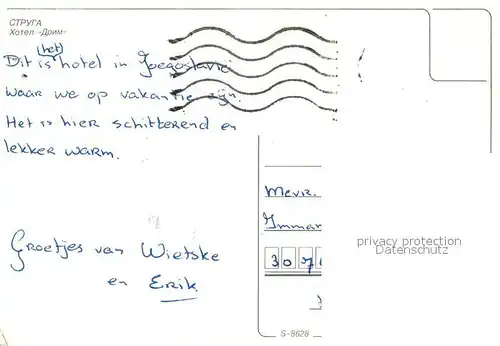 СТРУГА
Хотел «Дрим»
(het)
Dit is hotel in Joegoslavie
waar we op vakantie zijn.
Het is hier schitterend en
lekker warm.
Groetjes van Wietske
en Erik.
Mevr.
Immar
307
privacy protection
Datenschutz
S-8628